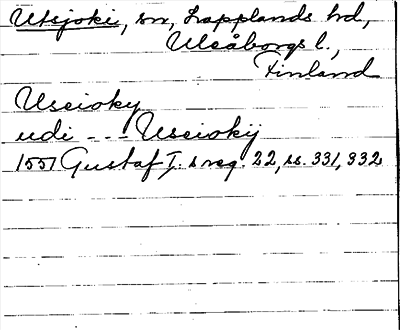 Utsjoki, sn, Lapplands hd,
Uleåborgs l.,
Finland
Useioky
udi - - - Useiokÿ
1551 Gustaf I. s reg. 22, ss. 331, 332